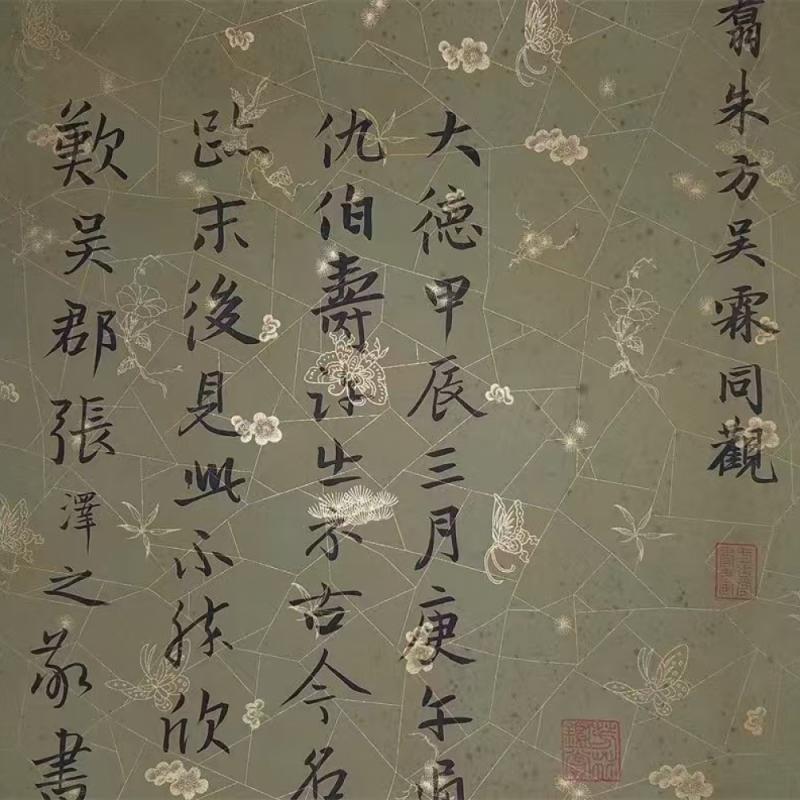 朱方吴霖同觀
大德甲辰三月庚午
仇伯壽許出示古今名
臨末後見此不勝欣
歎吴郡張澤之敬書